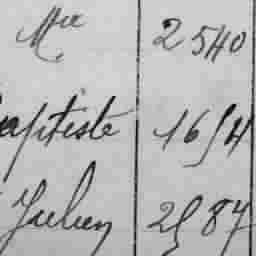 Mie 2540
aptiste 1654
Julien 2587